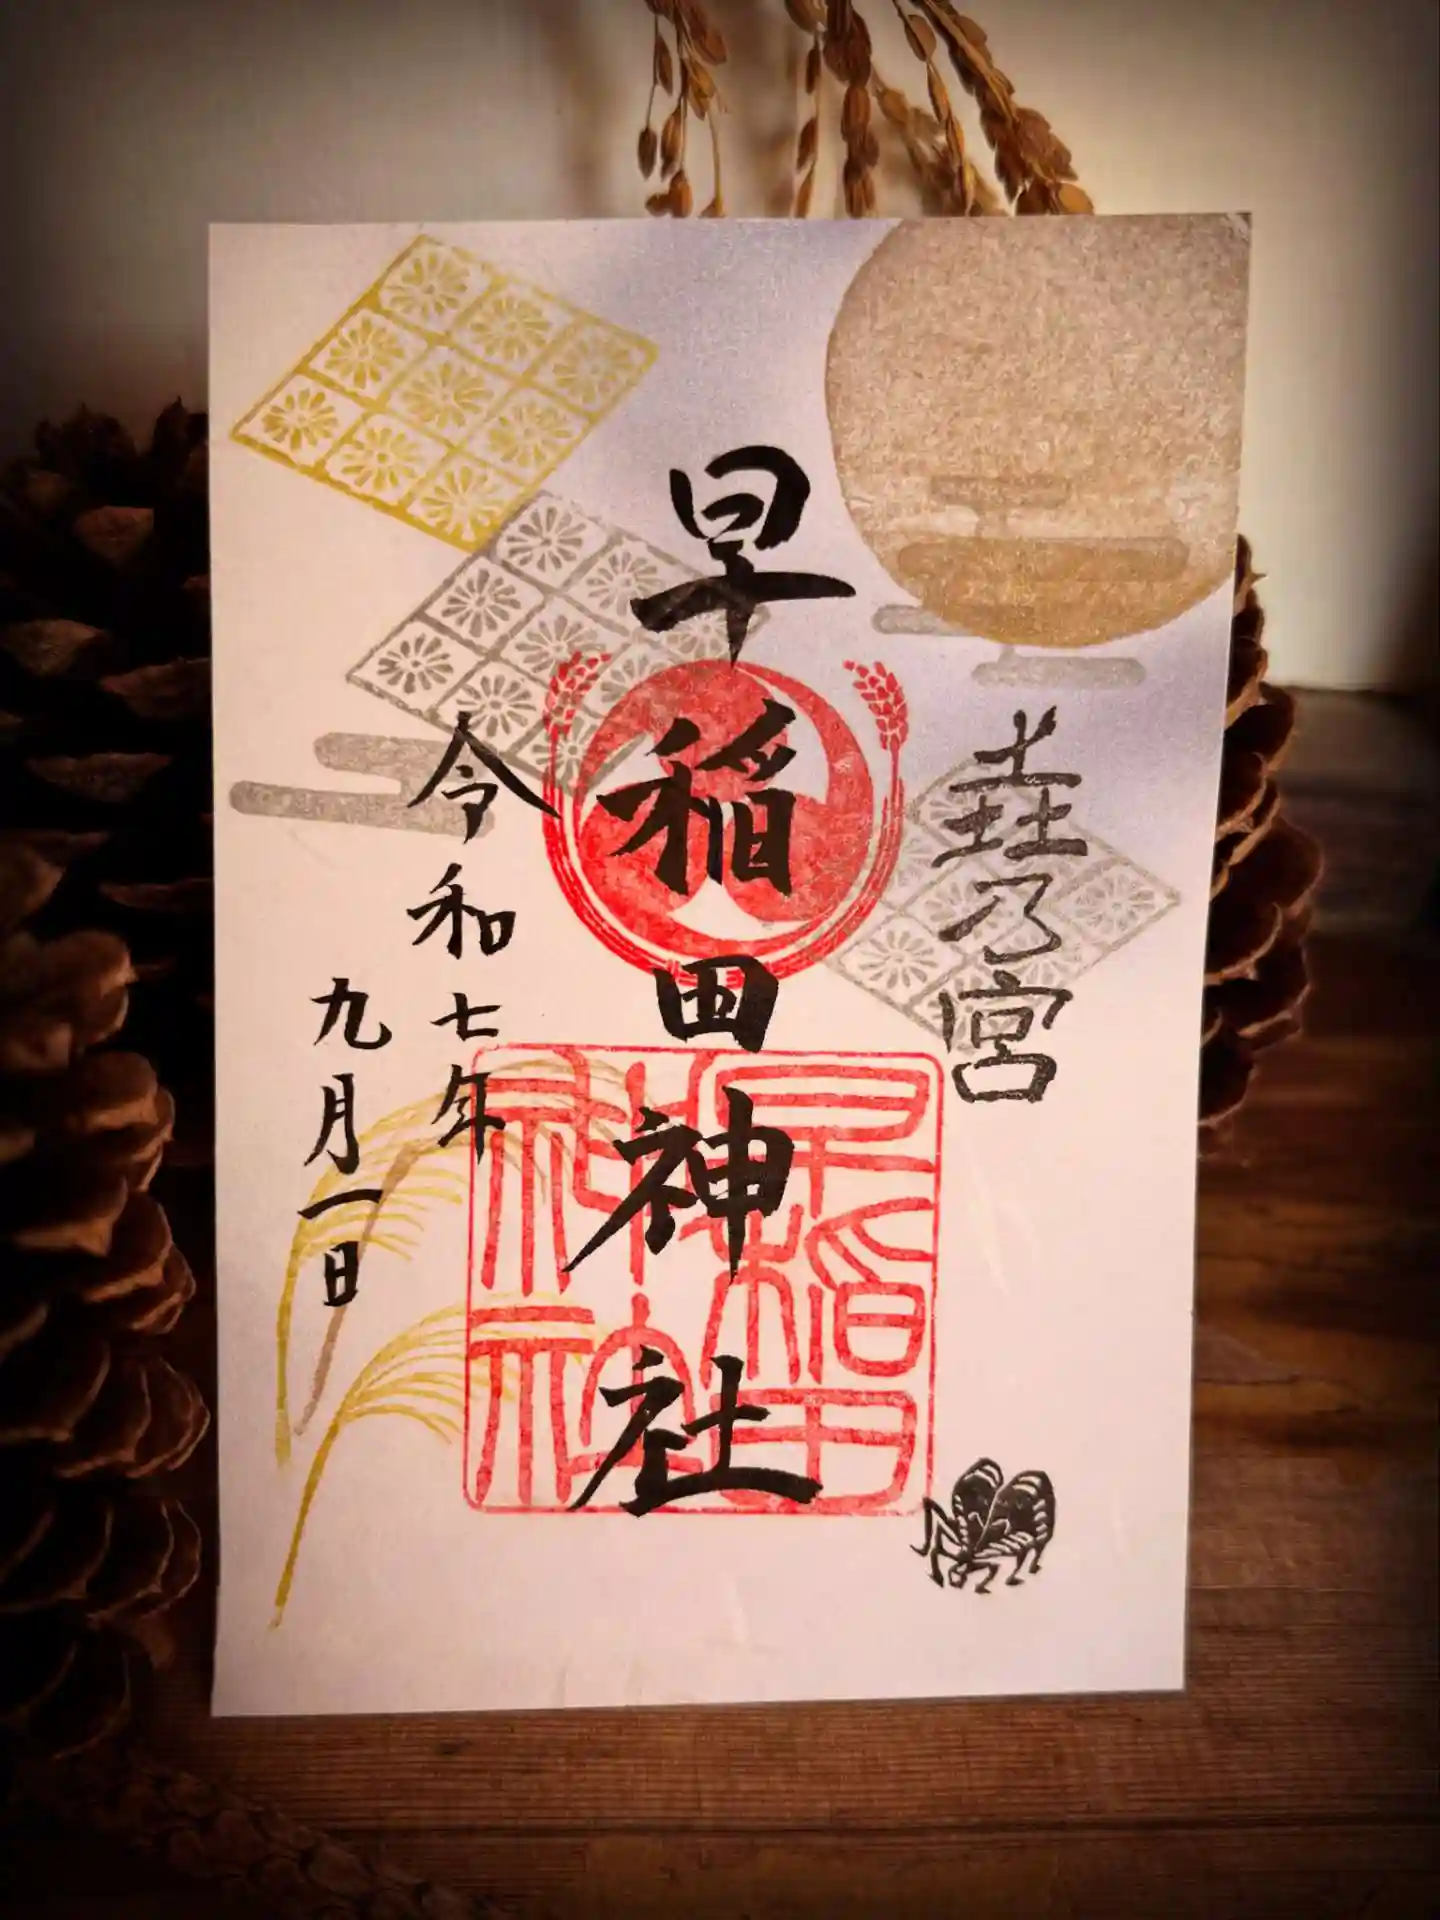 垚乃宮
早稲田神社
令和七年
九月一日
早稲田
神社